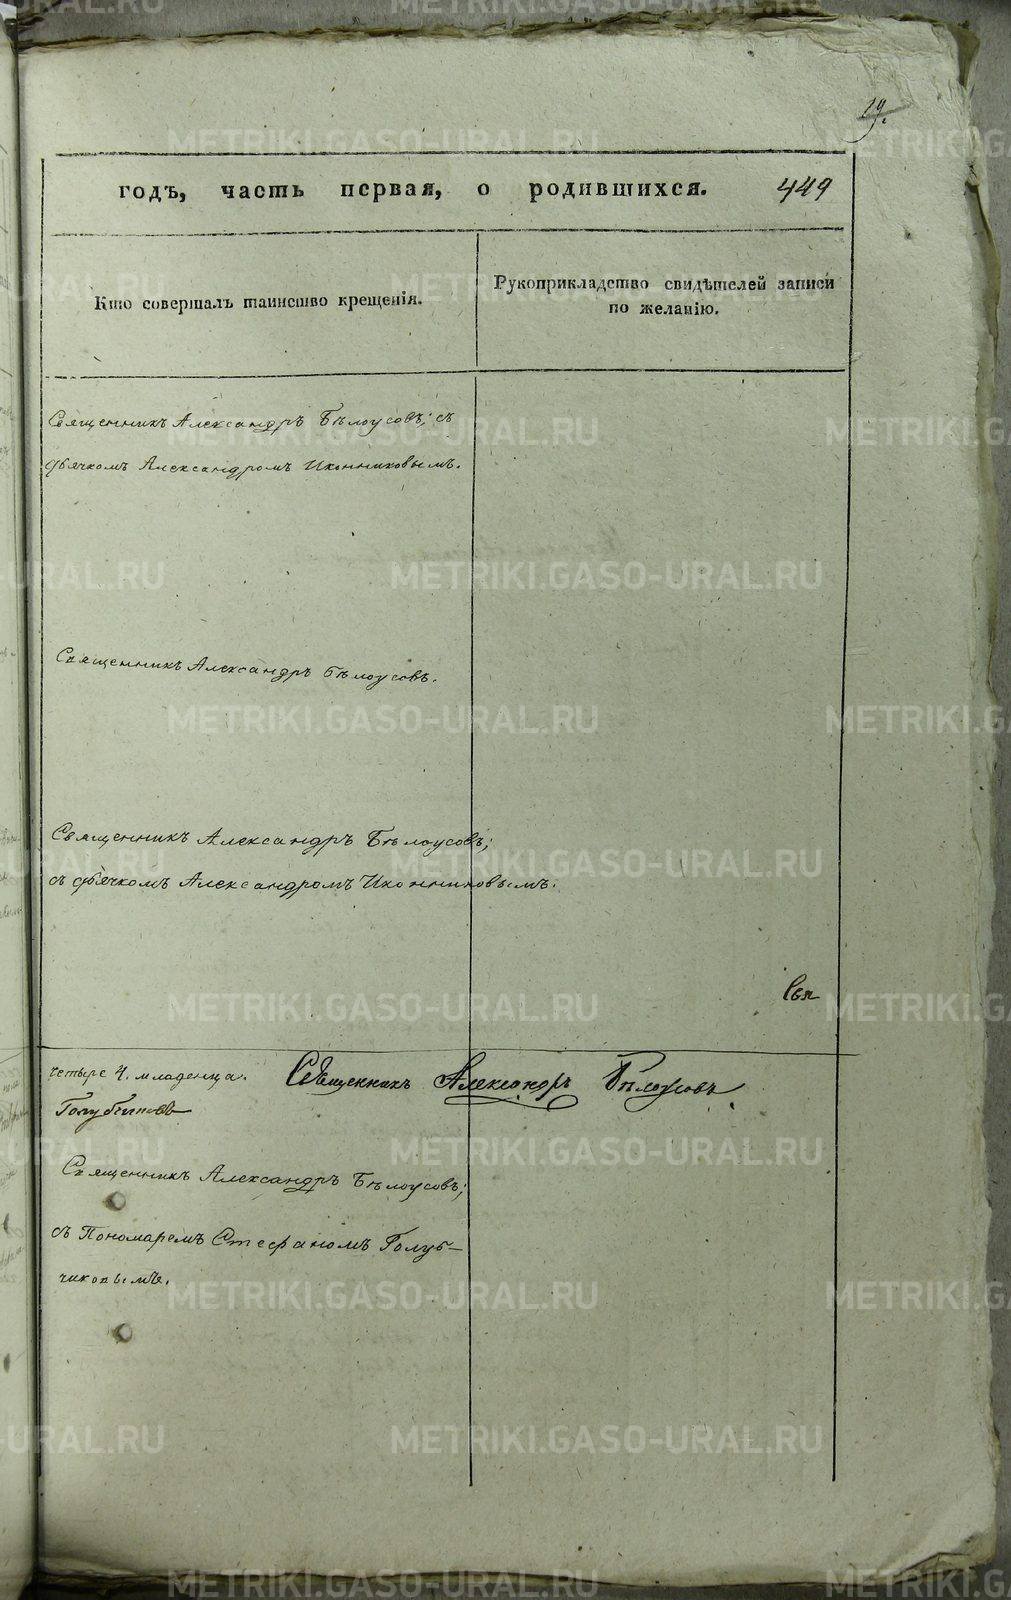 19.
годъ, часть первая, о родившихся. 449
Кто совершалъ таинство крещенія.
Рукоприкладство свидѣтелей записи
по желанію.
Священникъ Александръ Бѣлоусовъ; съ
дьячкомъ Александромъ Иконниковымъ.
Священникъ Александръ Бѣлоусовъ.
Священникъ Александръ Бѣлоусовъ;
съ дьячкомъ Александромъ Иконниковымъ.
Свя
четыре 4. младенца. Священникъ Александръ Бѣлоусовъ
Священникъ Александръ Бѣлоусовъ;
съ Пономаремъ Стефаномъ Голуб-
чиковымъ.
METRIKI.GASO-URAL.RU